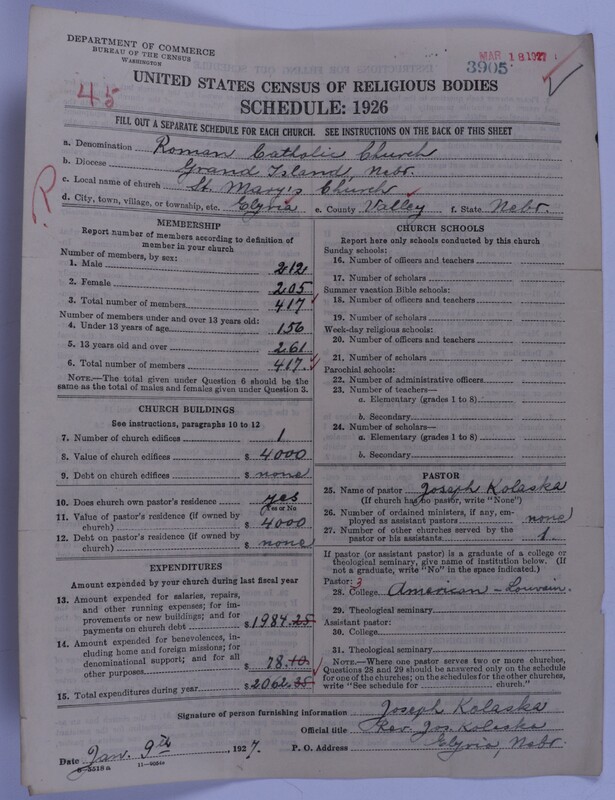 DEPARTMENT OF COMMERCE
BUREAU OF THE CENSUS
WASHINGTON
MAR 18 1927
3905
45
UNITED STATES CENSUS OF RELIGIOUS BODIES
SCHEDULE: 1926
FILL OUT A SEPARATE SCHEDULE FOR EACH CHURCH. SEE INSTRUCTIONS ON THE BACK OF THIS SHEET
a. Denomination Roman Catholic Church
b. Diocese Grand Island, Nebr.
c. Local name of church St. Mary's Church
R
d. City, town, village, or township, etc. Elyria e. County Valley f. State Nebr.
MEMBERSHIP
Report number of members according to definition of
member in your church
Number of members, by sex:
1. Male 212
2. Female 205
3. Total number of members 417
Number of members under and over 13 years old:
4. Under 13 years of age 156
5. 13 years old and over 261
6. Total number of members 417
NOTE.—The total given under Question 6 should be
the same as the total of males and females given under Question 3.
CHURCH BUILDINGS
See instructions, paragraphs 10 to 12
7. Number of church edifices 1
8. Value of church edifices $ 4000
9. Debt on church edifices $ none
10. Does church own pastor's residence? yes
Yes or No
11. Value of pastor's residence (if owned by
church) $ 4000
12. Debt on pastor's residence (if owned by
church) $ none
EXPENDITURES
Amount expended by your church during last fiscal year
13. Amount expended for salaries, repairs,
and other running expenses; for im-
provements or new buildings; and for
payments on church debt $ 1984.25
14. Amount expended for benevolences, in-
cluding home and foreign missions; for
denominational support; and for all
other purposes $ 78.10
15. Total expenditures during year $ 2062.35
CHURCH SCHOOLS
Report here only schools conducted by this church
Sunday schools:
16. Number of officers and teachers
17. Number of scholars
Summer vacation Bible schools:
18. Number of officers and teachers
19. Number of scholars
Week-day religious schools:
20. Number of officers and teachers
21. Number of scholars
Parochial schools:
22. Number of administrative officers
23. Number of teachers—
a. Elementary (grades 1 to 8)
b. Secondary
24. Number of scholars—
a. Elementary (grades 1 to 8)
b. Secondary
PASTOR
25. Name of pastor Joseph Kolaska
(If church has no pastor, write "None")
26. Number of ordained ministers, if any, em-
ployed as assistant pastors none
27. Number of other churches served by the
pastor or his assistants 1
If pastor (or assistant pastor) is a graduate of a college or
theological seminary, give name of institution below. (If
not a graduate, write "No" in the space indicated.)
Pastor: 3
28. College American - Louvain.
29. Theological seminary
Assistant pastor:
30. College
31. Theological seminary
NOTE.—Where one pastor serves two or more churches,
Questions 28 and 29 should be answered only on the schedule
for one of the churches; on the schedules for the other churches,
write "See schedule for church."
Signature of person furnishing information Joseph Kolaska
Official title Rev. Jos. Kolaska
Date Jan. 9th, 1927. P. O. Address Elyria, Nebr.
8-5518a 11-9084